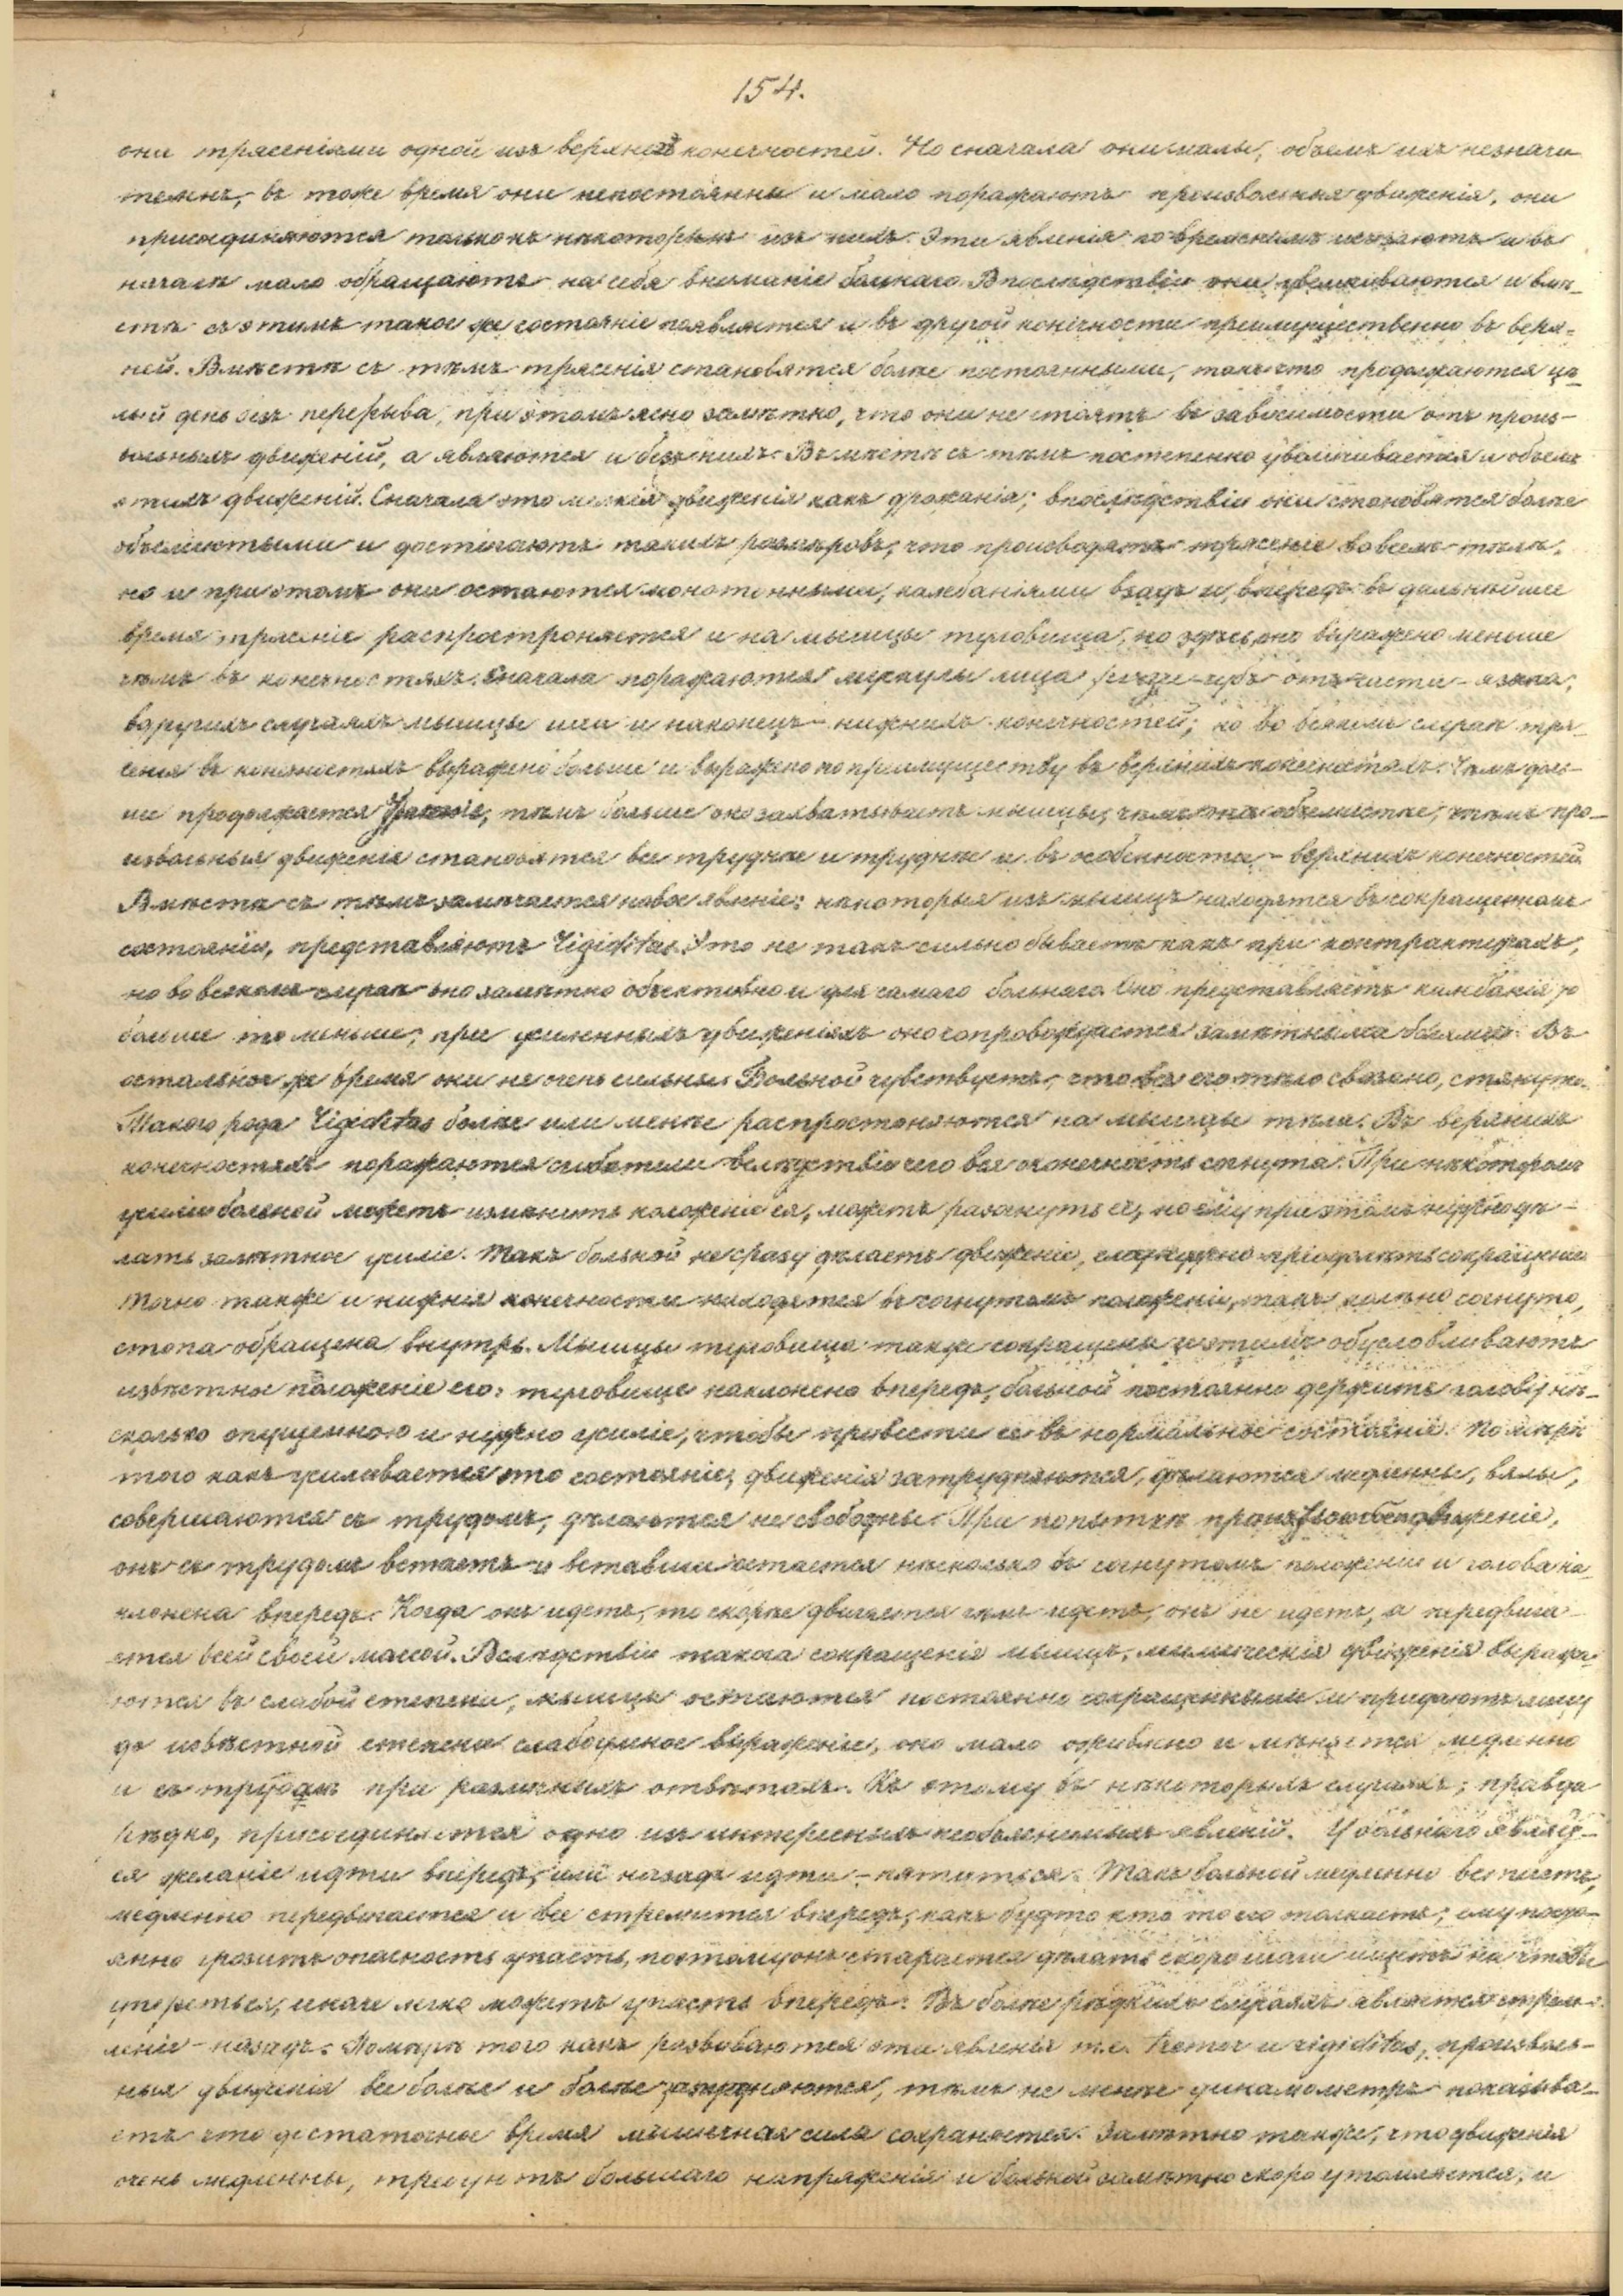 154.
они трясеніями одной изъ верхней конечностей. Но сначала они малы, объемъ ихъ незначи
теленъ, въ тоже время они непостоянны и мало поражаютъ произвольныя движенія, они
присоединяются только къ некоторымъ изъ нихъ. Эти явленія по временамъ исчезаютъ и въ
началѣ мало обращаютъ на себя вниманіе больнаго. Впослѣдствіи они увеличиваются и вмѣ-
стѣ съ этимъ такое же состояніе появляется и въ другой конечности преимущественно въ верх-
ней. Вмѣстѣ съ тѣмъ трясенія становятся болѣе постоянными, такъ что продолжаются цѣ-
лый день безъ перерыва, при этомъ ясно замѣтно, что они не стоятъ въ зависимости отъ произ-
вольныхъ движеній, а являются и безъ нихъ. Вмѣстѣ съ тѣмъ постепенно увеличивается и объемъ
этихъ движеній. Сначала это мелкія движенія какъ дрожанія; впослѣдствіи они становятся болѣе
объемистыми и достигаютъ такихъ размѣровъ, что производятъ трясеніе во всемъ тѣлѣ,
но и при этомъ они остаются монотонными, колебаніями взадъ и впередъ. въ дальнѣйшее
время трясеніе распростроняется и на мышцы туловища, но здѣсь оно выражено меньше
чѣмъ въ конечностяхъ. Сначала поражаются мускулы лица губъ отчасти - языка,
въ другихъ случаяхъ мышцы шеи и наконецъ - нижнихъ конечностей; но во всякомъ случаѣ тря-
сенія въ конечностяхъ выражено больше и выражено по преимуществу въ верхнихъ конечностяхъ. Чѣмъ доль-
ше продолжается тѣмъ больше оно захватываетъ мышцы, чѣмъ оно объемистѣе, тѣмъ про-
извольныя движенія становятся все труднѣе и труднѣе и въ особенности - верхнихъ конечностей.
Вмѣстѣ съ тѣмъ замѣчается новое явленіе: некоторыя изъ мышцъ находятся въ сокращенномъ
состояніи, представляютъ rigiditas. Это не такъ сильно бываетъ какъ при контрактурахъ,
но во всякомъ случаѣ оно замѣтно объективно и для самаго больнаго. Оно представляетъ колебанія то
больше то меньше; при усиленныхъ движеніяхъ оно сопровождается замѣтными болями. Въ
остальное же время они не очень сильны. Больной чувствуетъ, что все его тѣло связано, стянуто.
Такого рода rigiditas болѣе или менѣе распростоняются на мышцы тѣла. Въ верхнихъ
конечностяхъ поражаются сгибатели вслѣдствіе чего вся оконечность согнута. При нѣкоторомъ
усиліи больной можетъ измѣнить положеніе ея, можетъ разогнуть ее, но ему при этомъ нужно дѣ-
лать замѣтное усиліе. Такъ больной не сразу дѣлаетъ движеніе, ему нужно преодолѣть сокращеніе.
Точно также и нижнія конечности находятся въ согнутомъ положеніи, такъ колѣно согнуто,
стопа обращена внутрь. Мышцы туловища также сокращены и этимъ обусловливаютъ
извѣстное положеніе его: туловище наклонено впередъ, больной постоянно держитъ голову нѣ-
сколько опущенною и нужно усиліе, чтобы привести ее въ нормальное состояніе. По мѣрѣ
того какъ усиливается это состояніе, движенія затрудняются, дѣлаются медленны, вялы,
совершаются съ трудомъ, дѣлаются не свободны. При попыткѣ движеніе,
онъ съ трудомъ встаетъ и вставши остается нѣсколько въ согнутомъ положеніи и голова на-
клонена впередъ. Когда онъ идетъ, то скорѣе двигается чѣмъ идетъ, онъ не идетъ, а передвига-
ется всей своей массой. Вслѣдствіи такога сокращенія мышцъ, мимическія движенія выража-
ются въ слабой степени, мышцы остаются постоянно сокращенными и придаютъ лицу
до извѣстной степени слабоумное выраженіе, оно мало оживлено и мѣняется медленно
и съ трудомъ при различныхъ отвѣтахъ. Къ этому въ нѣкоторыхъ случаяхъ; правда
рѣдко, присоединяется одно изъ интересныхъ необъяснимыхъ явленій. У больнаго являет-
ся желаніе идти впередъ, или назадъ идти - пятиться. Такъ больной медленно встаетъ,
медленно передвигается и все стремится впередъ, какъ будто кто то его толкаетъ; ему посто-
янно грозитъ опасность упасть, поэтому онъ старается дѣлать скоро шаги ищетъ на чтобы
упереться, иначе легко можетъ упасть впередъ. Въ болѣе рѣдкихъ случаяхъ является стрем-
леніе - назадъ. По мѣрѣ того какъ развиваются эти явленія т.е. tremor и rigiditas, произволь-
ныя движенія все болѣе и болѣе затрудняются, тѣмъ не менѣе динамометръ показыва-
етъ что достаточное время мышечная сила сохраняется. Замѣтно также, что движенія
очень медленны, требуютъ большаго напряженія и больной замѣтно скоро утомляется, и